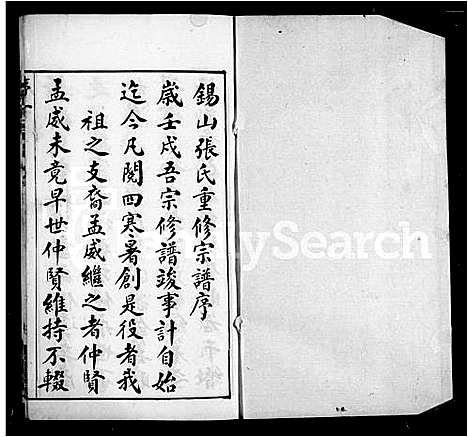 錫山張氏重修宗譜序
歲壬戌吾宗修譜竣事計自始
迄今凡閱四寒暑創是役者我
祖之支裔孟威繼之者仲賢
孟威未竟早世仲賢維持不輟
FamilySearch